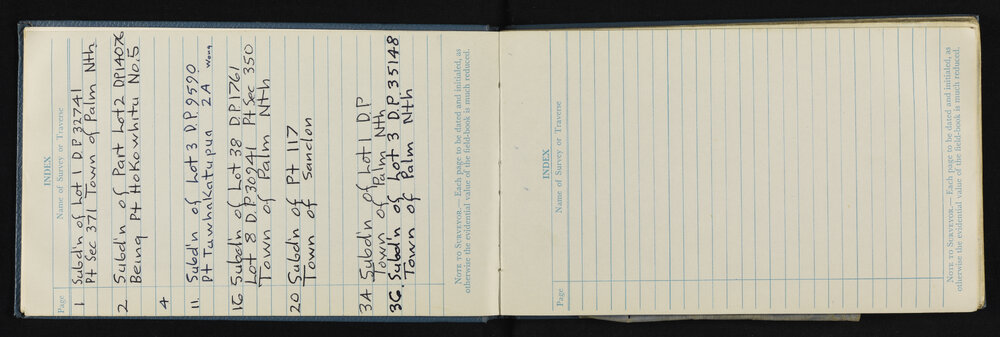 INDEX
Page Name of Survey or Traverse
1 Subd'n of Lot 1 D.P 32741
Pt Sec 371 Town of Palm Nth
2 Subd'n of Part Lot 2 DP14076
Being Pt Hokowhitu No.5
4
11. Subd'n of Lot 3 D.P. 9590
Pt Tuwhakatupua 2A Wong
16 Subdn of Lot 38 D.P. 1761
Lot 8 D.P 30941 Pt Sec 350
Town of Palm Nth
20 Subd'n of Pt 117
Town of Sandon
34 Subd'n of Lot 1 D.P
Town of Palm Nth
36. Subd'n of Lot 3 D.P. 35148
Town of Palm Nth
NOTE TO SURVEYOR.— Each page to be dated and initialed, as
otherwise the evidential value of the field-book is much reduced.
INDEX
Page Name of Survey or Traverse
NOTE TO SURVEYOR.— Each page to be dated and initialed, as
otherwise the evidential value of the field-book is much reduced.